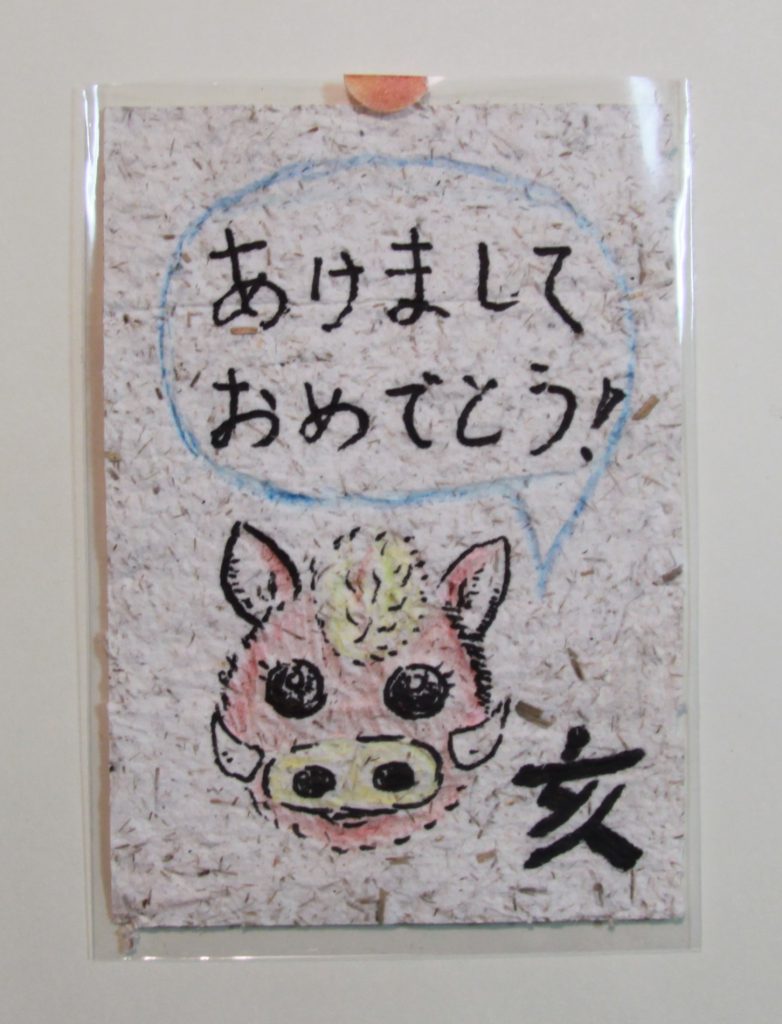 あけまして
おめでとう!
亥